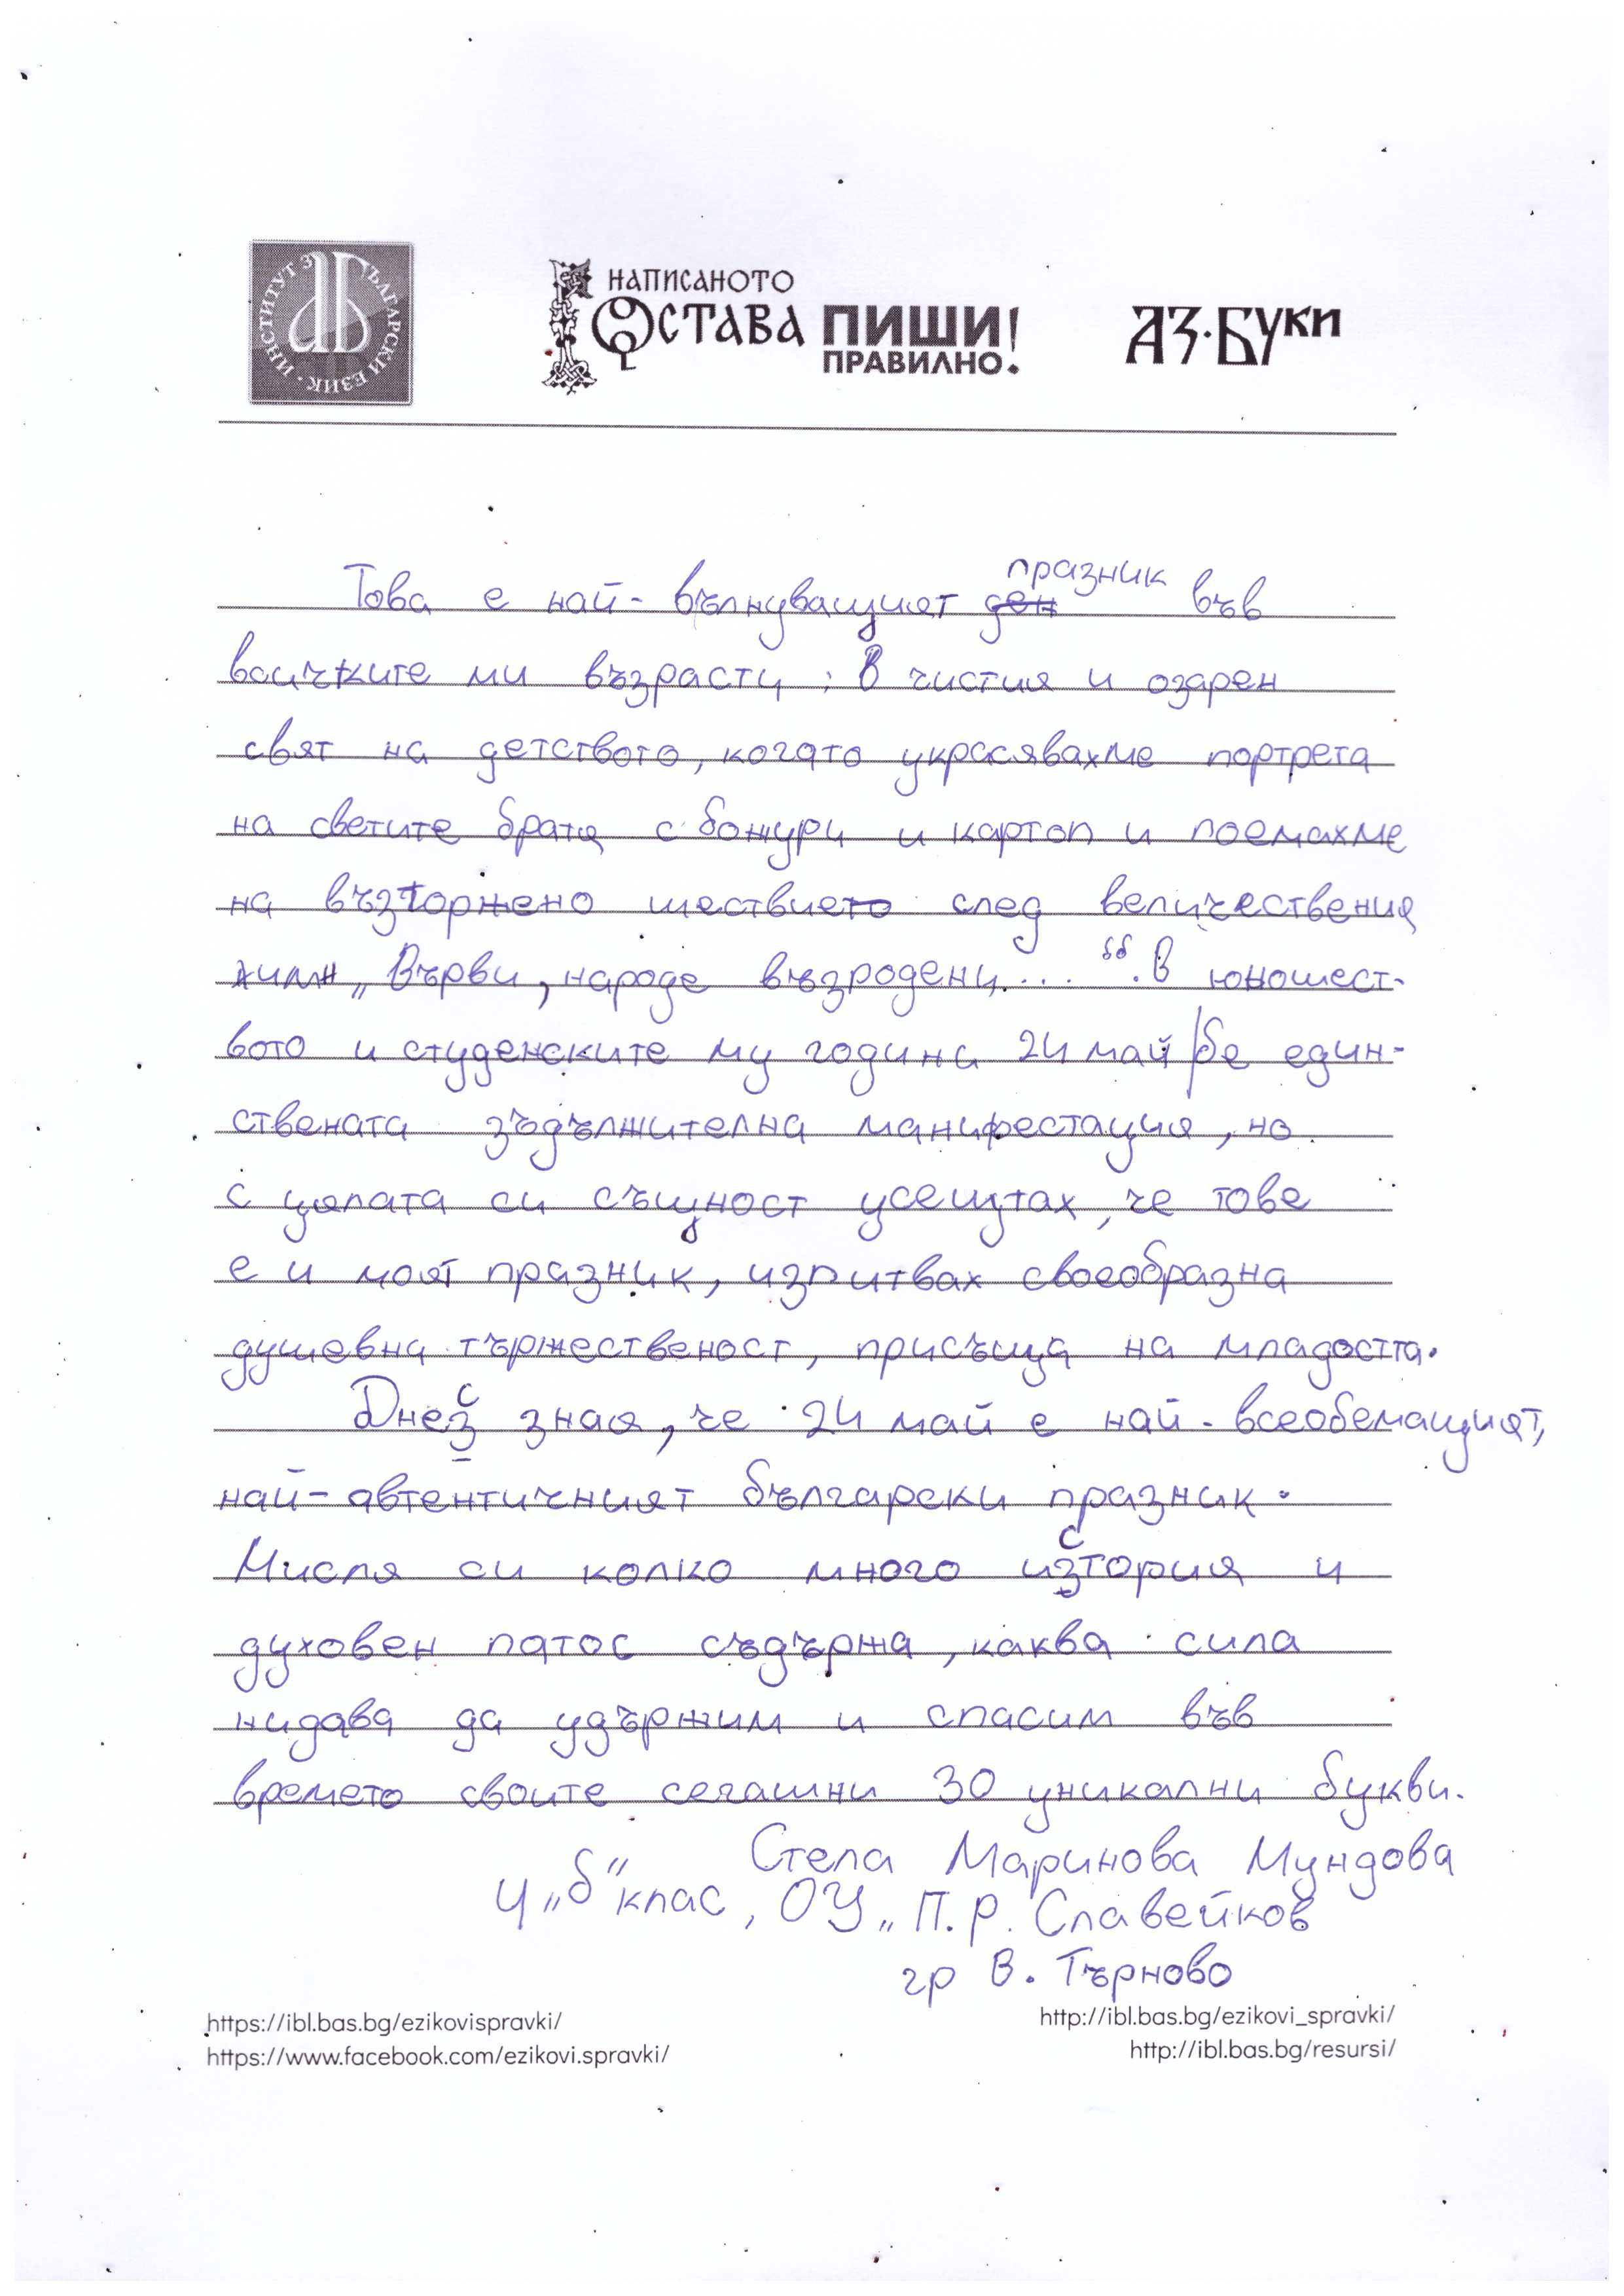 ИНСТИТУТ ЗА БЪЛГАРСКИ ЕЗИК
НАПИСАНОТО
ОСТАВА ПИШИ!
ПРАВИЛНО.
АЗ·БУКИ
Това е най-вълнуващият ден празник във
всичките ми възрасти: В чистия и озарен
свят на детството, когато украсявахме портрета
на светите братя с божури и картоп и поемахме
на възторжено шествието след величествения
химн „Върви, народе възродени...“. В юношест-
вото и студенските му години 24 май бе един-
ствената зъдължителна манифестация, но
с цялата си същност усещтах, че тове
е и моят празник, изпитвах своеобразна
душевна тържественост, присъща на младостта.
Днес зная, че 24 май е най-всеобемащият,
най-автентичният български празник.
Мисля си колко много история и
духовен патос съдържа, каква сила
нидава да удържим и спасим във
времето своите сегашни 30 уникални букви.
Стела Маринова Мундова
4 „б“ клас, ОУ „П. Р. Славейков
гр В. Търново
https://ibl.bas.bg/ezikovispravki/
http://ibl.bas.bg/ezikovi_spravki/
https://www.facebook.com/ezikovi.spravki/
http://ibl.bas.bg/resursi/